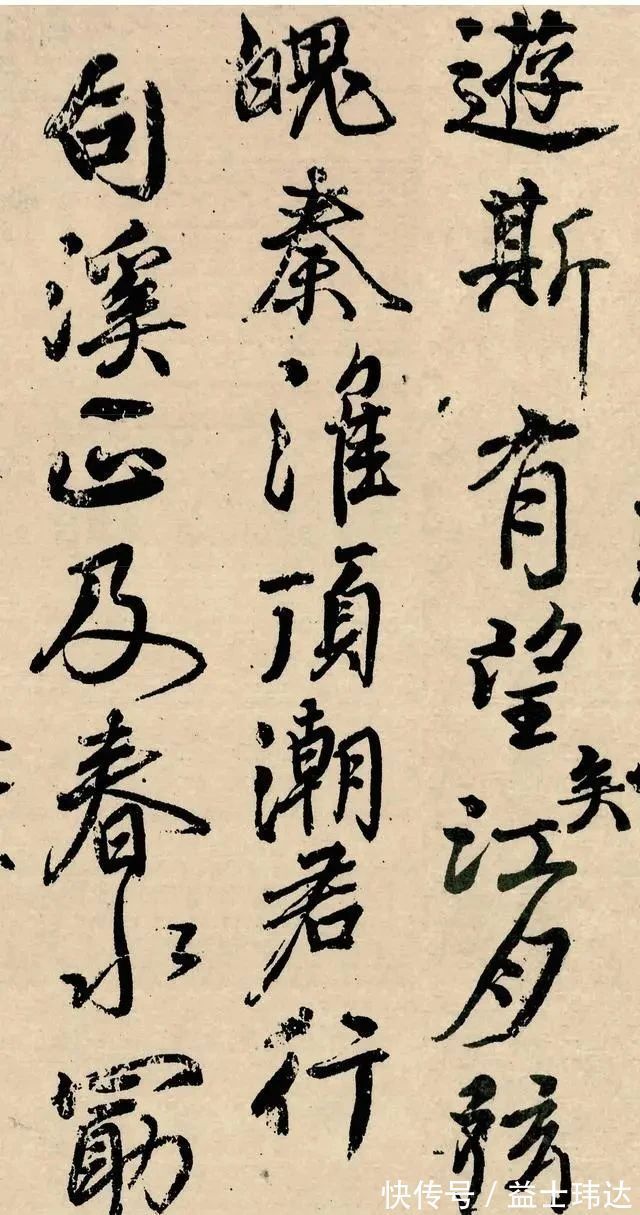 矣
遊斯有望江月
魄秦淮頂潮君行
句溪正及春水勗
快传号/益士玮达